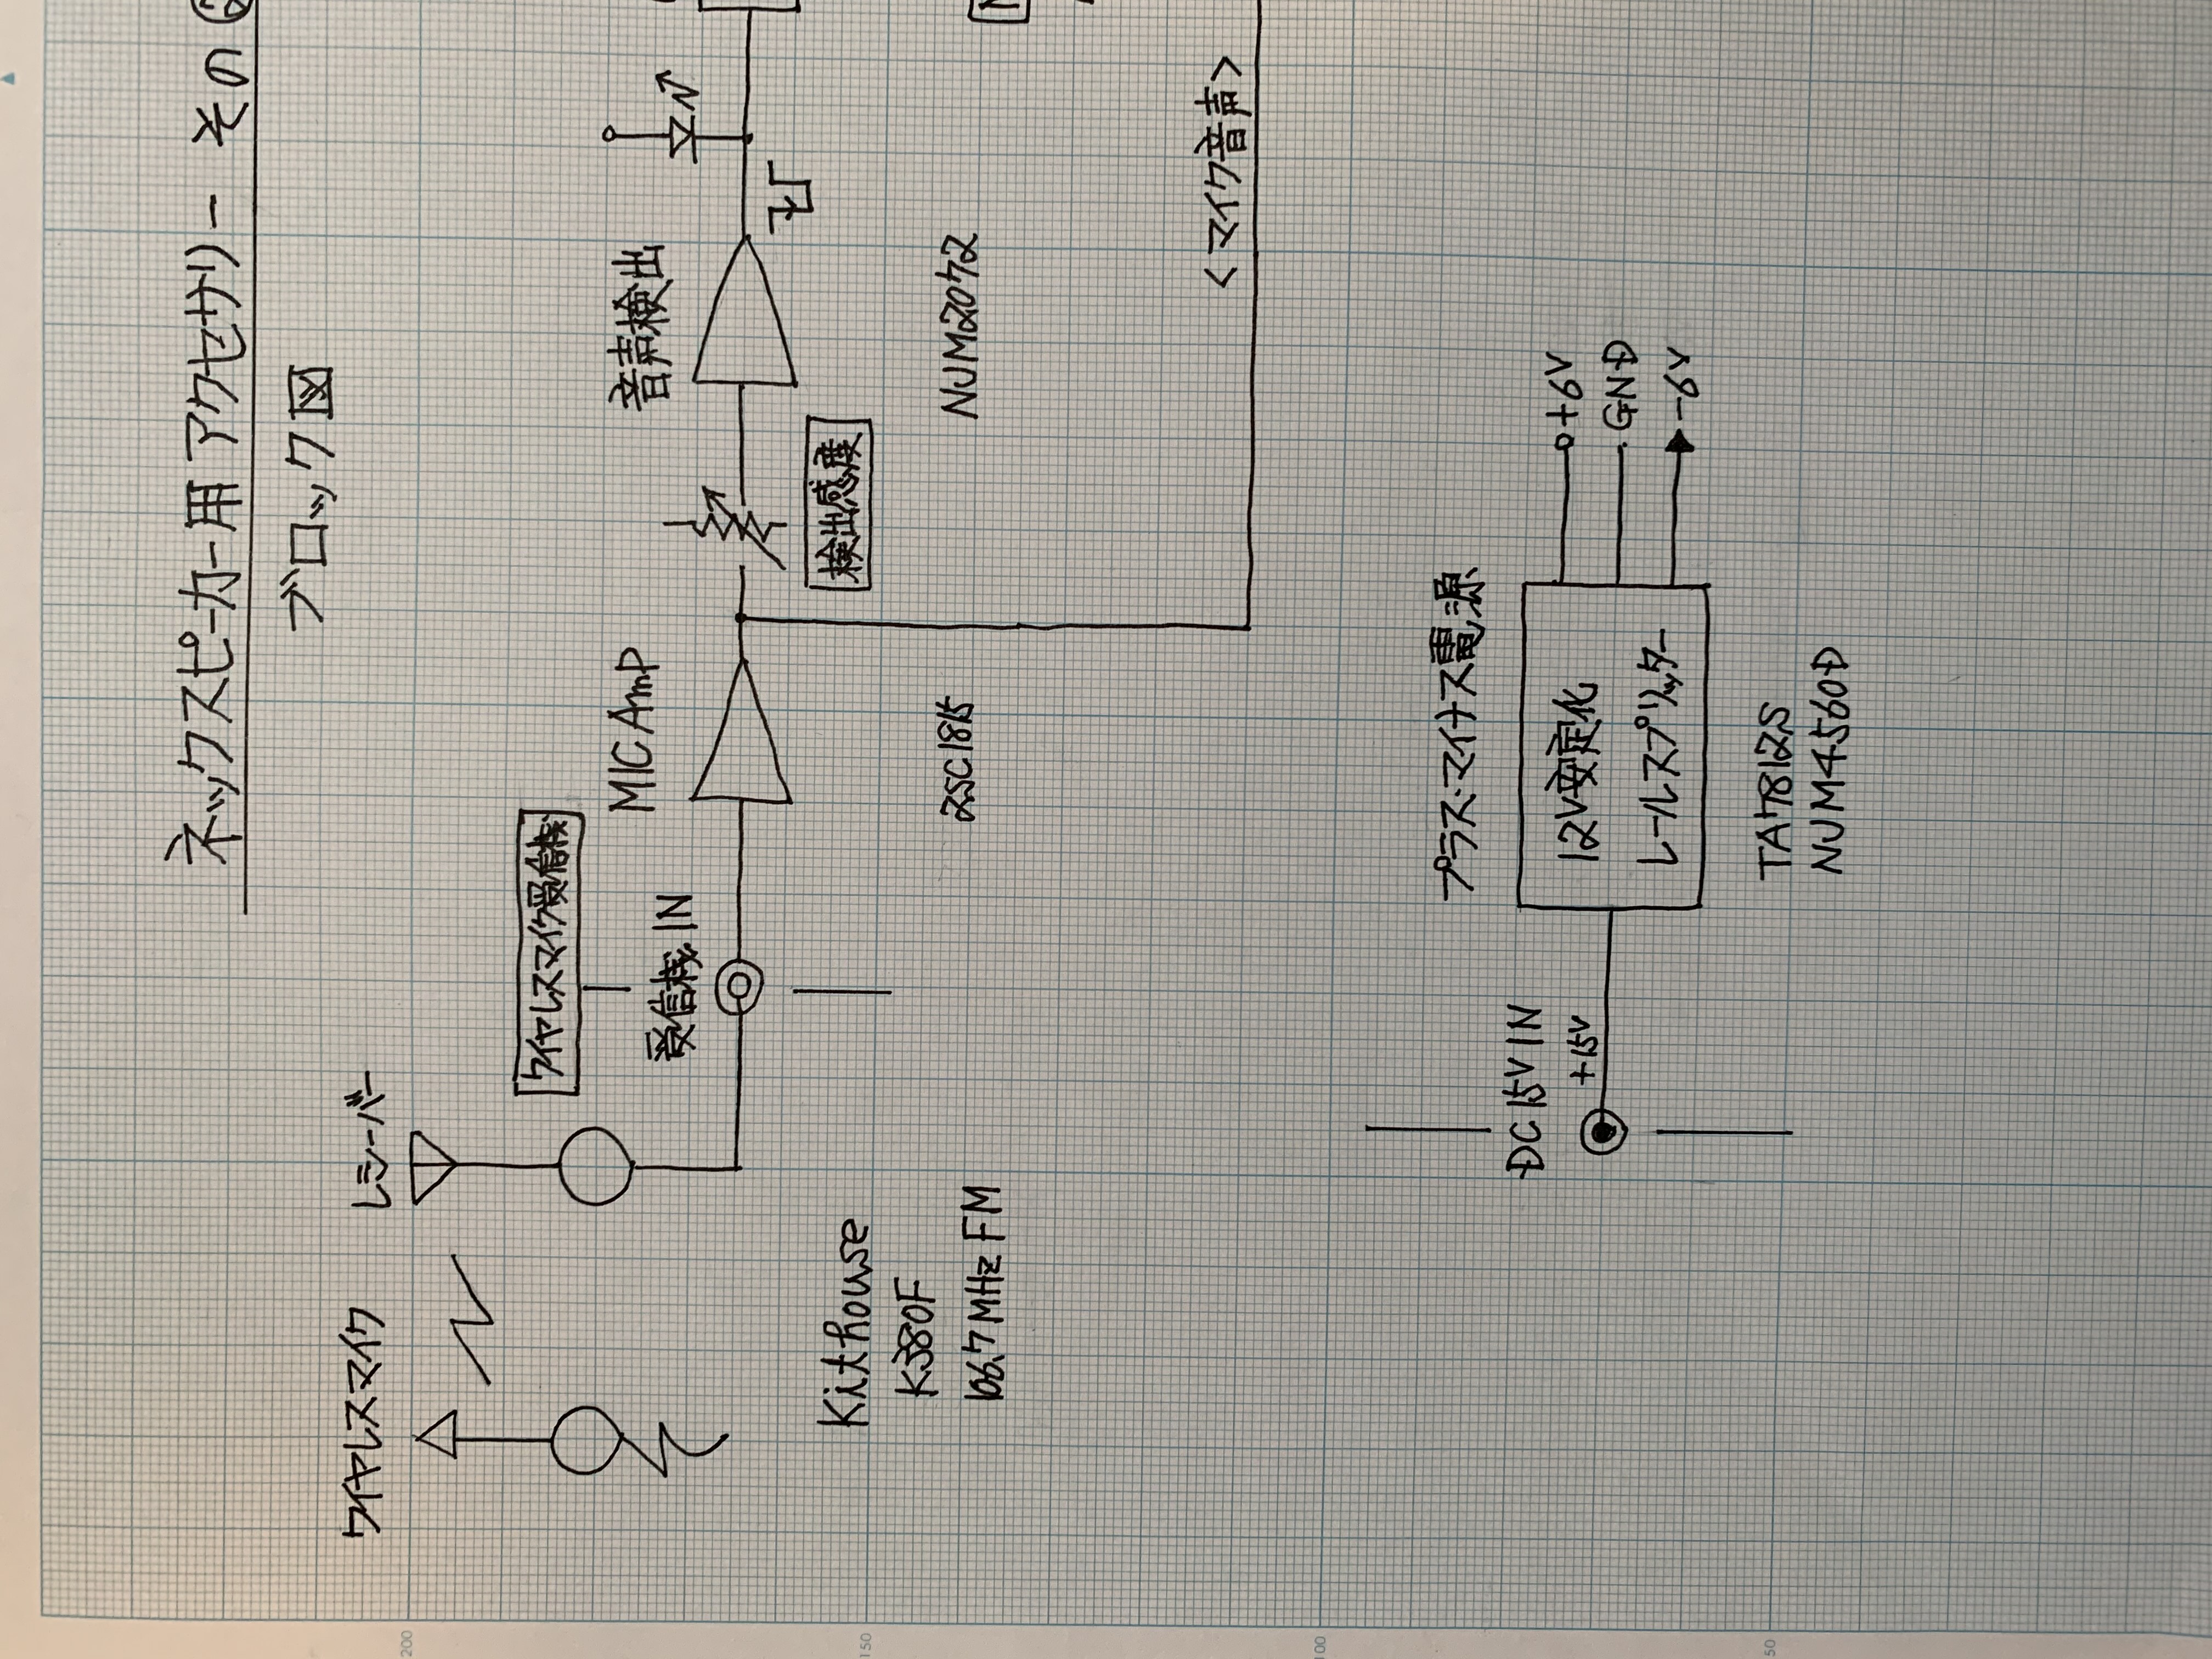 ネックスピーカー用アクセサリー その
ブロック図
ワイヤレスマイク
レシーバー
ワイヤレスマイク受信機
受信機 IN
MIC Amp
音声検出
検出感度
Kithouse
K380F
106.7 MHz FM
2SC1815
NJM2072
<マイク音声>
プラス・マイナス電源
DC 15V IN
+15V
12V安定化
レールスプリッター
+6V
GND
-6V
TA7812S
NJM4560D
200
150
100
50